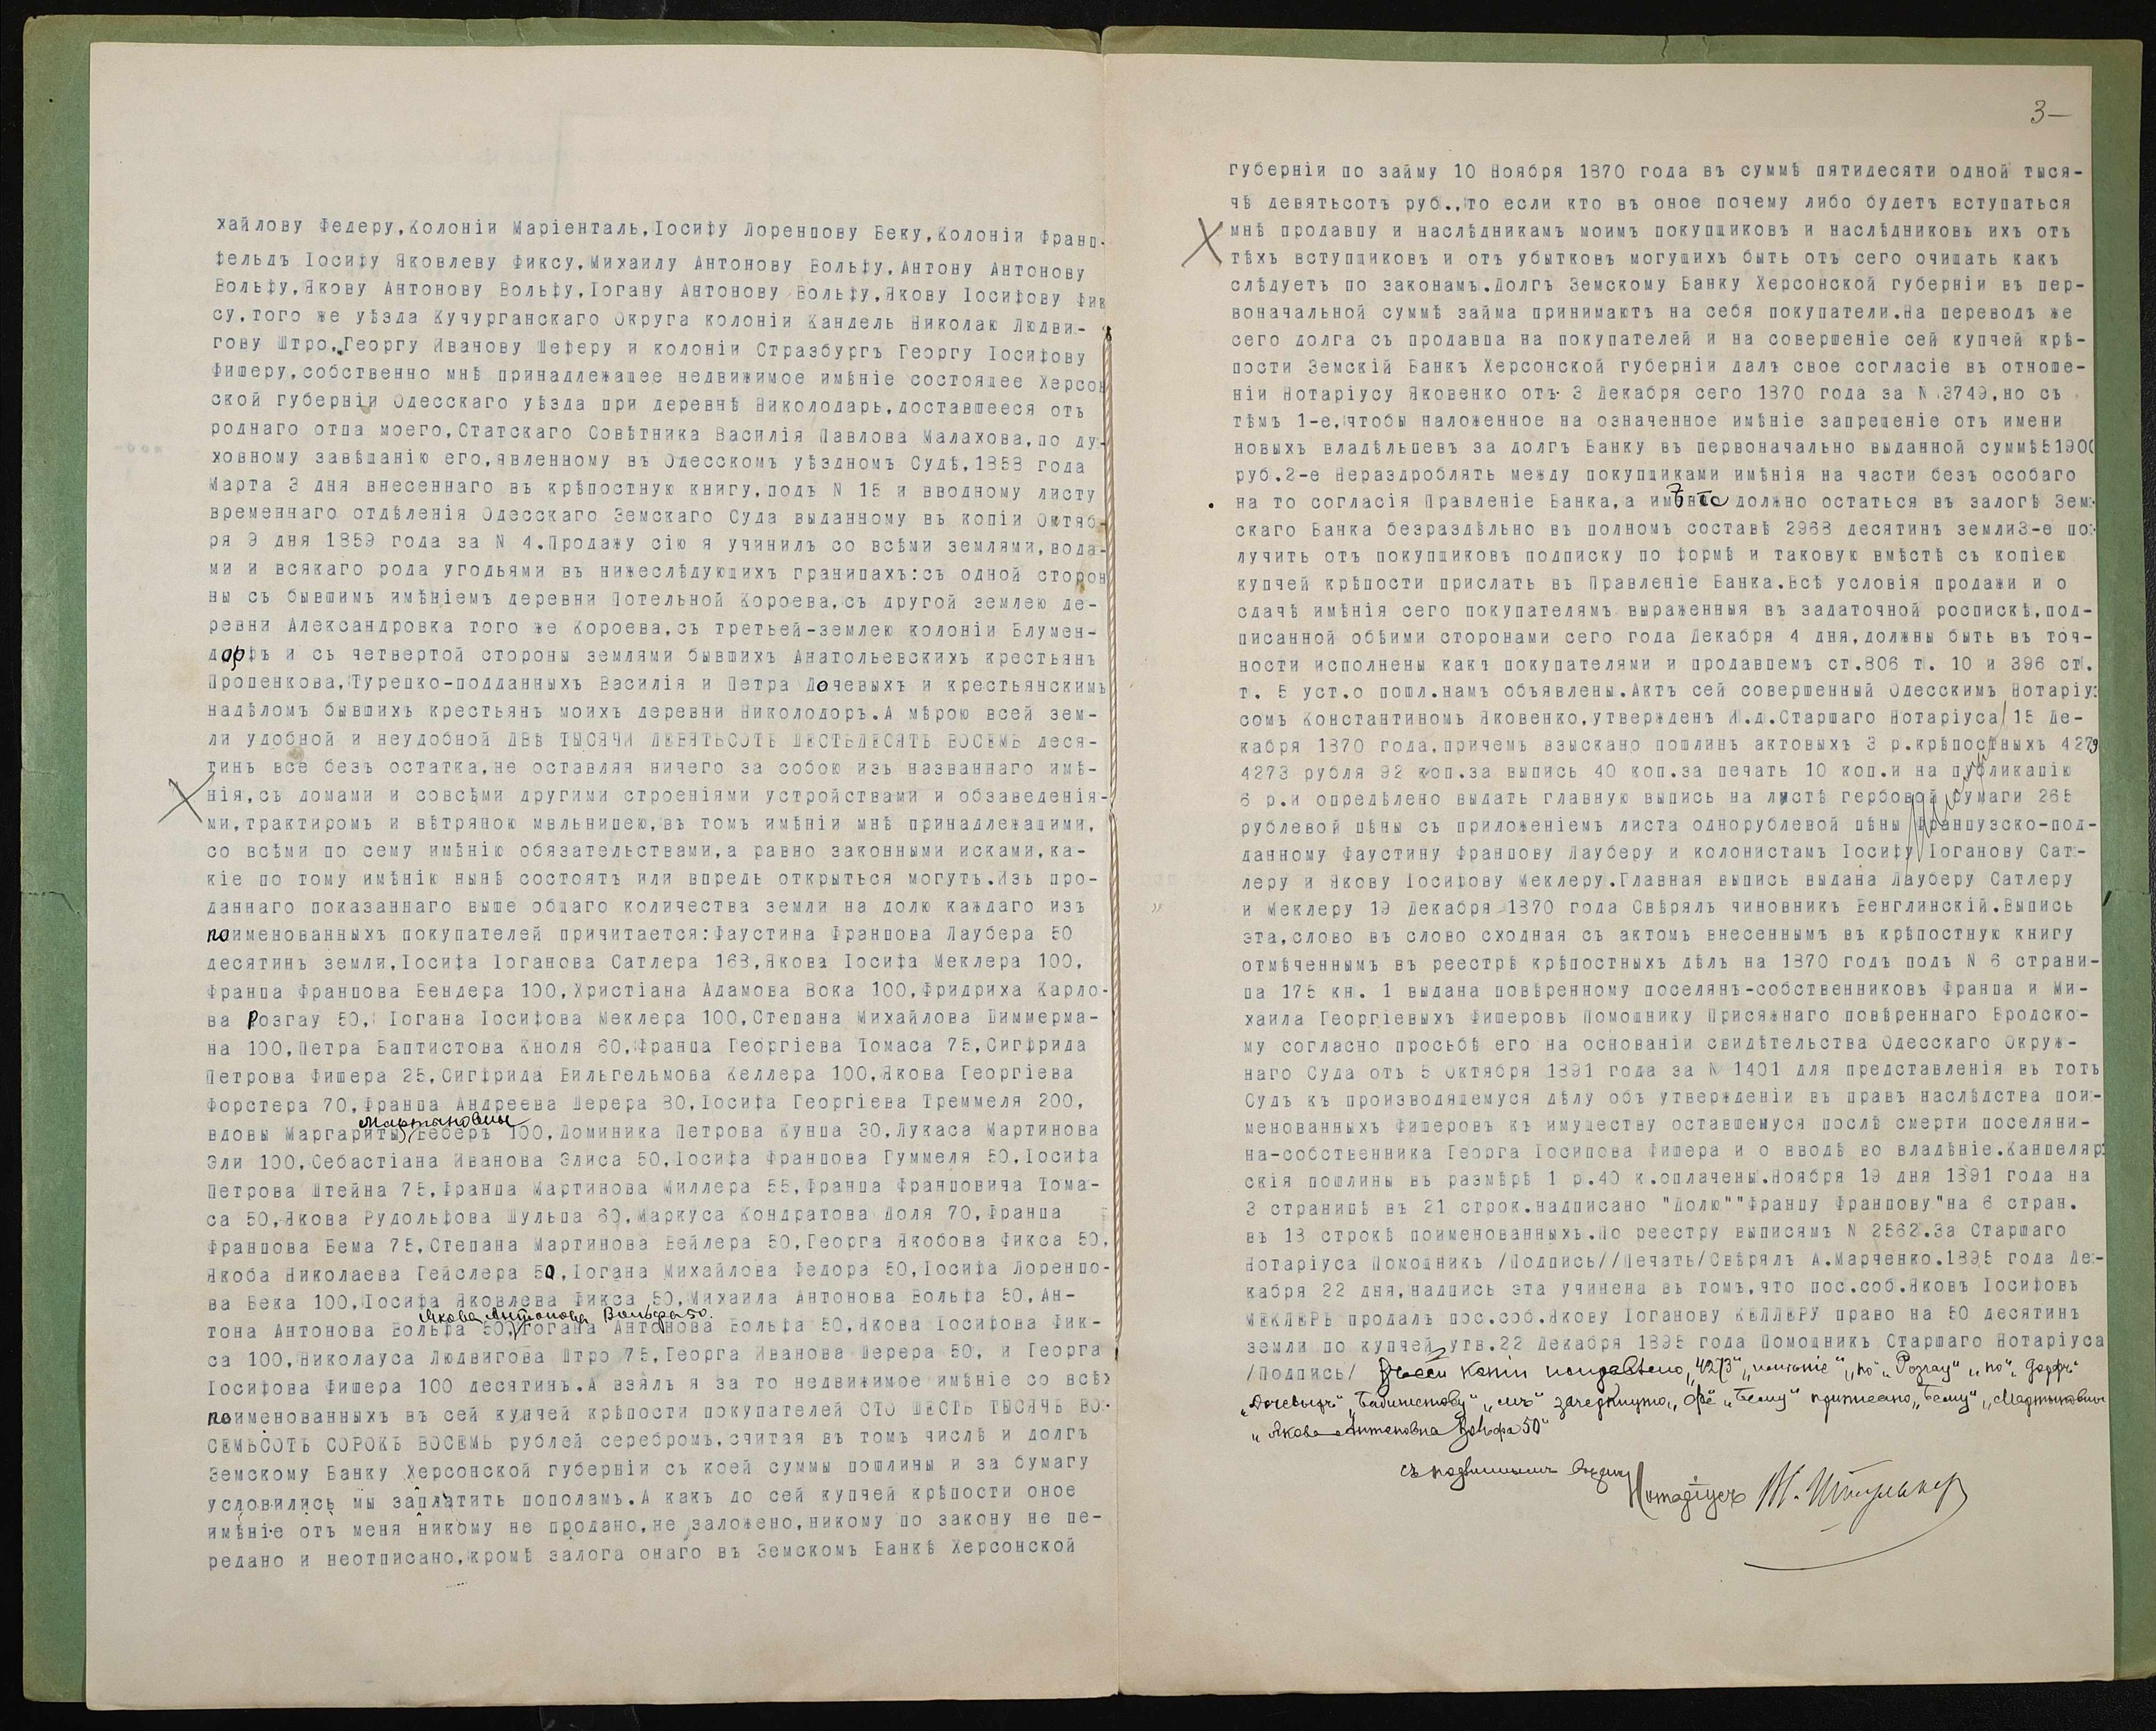 хайлову Федеру,Колоніи Маріенталь,Іосифу Лоренцову Беку,Колоніи Франц-
фельдъ Іосифу Яковлеву Фиксу,Михаилу Антонову Вольфу,Антону Антонову
Вольфу,Якову Антонову Вольфу,Іогану Антонову Вольфу,Якову Іосифову Фик
су,того же уѣзда Кучурганскаго Округа колоніи Кандель Николаю Людви-
гову Штро,Георгу Иванову Шеферу и колоніи Стразбургъ Георгу Іосифову
Фишеру,собственно мнѣ принадлежащее недвижимое имѣніе состоящее Херсон
ской губерніи Одесскаго уѣзда при деревнѣ Николодарь,доставшееся отъ
роднаго отца моего,Статскаго Совѣтника Василія Павлова Малахова,по ду-
ховному завѣщанію его,явленному въ Одесскомъ уѣздномъ Судѣ,1858 года
Марта 3 дня внесеннаго въ крѣпостную книгу,подъ N 15 и вводному листу
временнаго отдѣленія Одесскаго Земскаго Суда выданному въ копіи Октяб-
ря 9 дня 1859 года за N 4.Продажу сію я учинилъ со всѣми землями,вода-
ми и всякаго рода угодьями въ нижеслѣдующихъ границахъ:съ одной сторон
ны съ бывшимъ имѣніемъ деревни Потельной Короева,съ другой землею де-
ревни Александровка того же Короева,съ третьей-землею колоніи Блумен-
дорфъ и съ четвертой стороны землями бывшихъ Анатольевскихъ крестьянъ
Проценкова,Турецко-подданныхъ Василія и Петра Дочевыхъ и крестьянскимъ
надѣломъ бывшихъ крестьянъ моихъ деревни Николодоръ.А мѣрою всей зем-
ли удобной и неудобной ДВѢ ТЫСЯЧИ ДЕВЯТЬСОТЪ ШЕСТЬДЕСЯТЪ ВОСЕМЬ деся-
тинъ все безъ остатка,не оставляя ничего за собою изъ названнаго имѣ-
нія,съ домами и совсѣми другими строеніями устройствами и обзаведенія-
ми,трактиромъ и вѣтряною мельницею,въ томъ имѣніи мнѣ принадлежащими,
со всѣми по сему имѣнію обязательствами,а равно законными исками,ка-
кіе по тому имѣнію нынѣ состоятъ или впредь открыться могутъ.Изъ про-
даннаго показаннаго выше общаго количества земли на долю каждаго изъ
поименованныхъ покупателей причитается:Фаустина Францова Лаубера 50
десятинъ земли,Іосифа Іоганова Сатлера 168,Якова Іосифа Меклера 100,
Франца Францова Бендера 100,Христіана Адамова Вока 100,Фридриха Карло-
ва Розгау 50, Іогана Іосифова Меклера 100,Степана Михайлова Циммерма-
на 100,Петра Баптистова Кноля 60,Франца Георгіева Томаса 75,Сигфрида
Петрова Фишера 25,Сигфрида Вильгельмова Келлера 100,Якова Георгіева
Форстера 70,Франца Андреева Шерера 80,Іосифа Георгіева Треммеля 200,
Мартыновны
вдовы Маргариты Веберъ 100,Доминика Петрова Кунца 30,Лукаса Мартинова
Эли 100,Себастіана Иванова Элиса 50,Іосифа Францова Гуммеля 50,Іосифа
Петрова Штейна 75,Франца Мартинова Миллера 55,Франца Францовича Тома-
са 50,Якова Рудольфова Шульца 60,Маркуса Кондратова Доля 70,Франца
Францова Бема 75,Степана Мартинова Вейлера 50,Георга Якобова Фикса 50,
Якоба Николаева Гейслера 50,Іогана Михайлова Федора 50,Іосифа Лоренцо-
ва Бека 100,Іосифа Яковлева Фикса 50,Михаила Антонова Вольфа 50,Ан-
Якова Антонова Вольфа 50.
тона Антонова Вольфа 50,Іогана Антонова Вольфа 50,Якова Іосифова Фик-
са 100,Николауса Людвигова Штро 75,Георга Иванова Шерера 50, и Георга
Іосифова Фишера 100 десятинъ.А взялъ я за то недвижимое имѣніе со всѣх
поименованныхъ въ сей купчей крѣпости покупателей СТО ШЕСТЬ ТЫСЯЧЪ ВО-
СЕМЬСОТЪ СОРОКЪ ВОСЕМЬ рублей серебромъ,считая въ томъ числѣ и долгъ
Земскому Банку Херсонской губерніи съ коей суммы пошлины и за бумагу
условились мы заплатить пополамъ.А какъ до сей купчей крѣпости оное
имѣніе отъ меня никому не продано,не заложено,никому по закону не пе-
редано и неотписано,кромѣ залога онаго въ Земскомъ Банкѣ Херсонской
3—
губерніи по займу 10 Ноября 1870 года въ суммѣ пятидесяти одной тыся-
чѣ девятьсотъ руб.,то если кто въ оное почему либо будетъ вступаться
мнѣ продавцу и наслѣдникамъ моимъ покупщиковъ и наслѣдниковъ ихъ отъ
тѣхъ вступщиковъ и отъ убытковъ могущихъ быть отъ сего очищать какъ
слѣдуетъ по законамъ.Долгъ Земскому Банку Херсонской губерніи въ пер-
воначальной суммѣ займа принимаютъ на себя покупатели.На переводъ же
сего долга съ продавца на покупателей и на совершеніе сей купчей крѣ-
пости Земскій Банкъ Херсонской губерніи далъ свое согласіе въ отноше-
ніи Нотаріусу Яковенко отъ 3 Декабря сего 1870 года за N 3749,но съ
тѣмъ 1-е,чтобы наложенное на означенное имѣніе запрещеніе отъ имени
новыхъ владѣльцевъ за долгъ Банку въ первоначально выданной суммѣ51900
руб.2-е Нераздроблять между покупщиками имѣнія на части безъ особаго
на то согласія Правленіе Банка,а имѣніе должно остаться въ залогѣ Зем-
скаго Банка безраздѣльно въ полномъ составѣ 2968 десятинъ земли3-е по-
лучить отъ покупщиковъ подписку по формѣ и таковую вмѣстѣ съ копіею
купчей крѣпости прислать въ Правленіе Банка.Всѣ условія продажи и о
сдачѣ имѣнія сего покупателямъ выраженныя въ задаточной роспискѣ,под-
писанной обѣими сторонами сего года Декабря 4 дня,должны быть въ точ-
ности исполнены какъ покупателями и продавцемъ ст.806 т. 10 и 396 ст.
т. 5 уст.о пошл.намъ объявлены.Актъ сей совершенный Одесскимъ Нотаріу-
сомъ Константиномъ Яковенко,утвержденъ И.д.Старшаго Нотаріуса 15 Де-
кабря 1870 года,причемъ взыскано пошлинъ актовыхъ 3 р.крѣпостныхъ 4273
4273 рубля 92 коп.за выпись 40 коп.за печать 10 коп.и на публикацію
6 р.и опредѣлено выдать главную выпись на листѣ гербовой бумаги 265
рублевой цѣны съ приложеніемъ листа однорублевой цѣны Французско-под-
данному Фаустину Францову Лауберу и колонистамъ Іосифу Іоганову Сат-
леру и Якову Іосифову Меклеру.Главная выпись выдана Лауберу Сатлеру
и Меклеру 19 Декабря 1870 года Свѣрялъ чиновникъ Венглинскій.Выпись
эта,слово въ слово сходная съ актомъ внесеннымъ въ крѣпостную книгу
отмѣченнымъ въ реестрѣ крѣпостныхъ дѣлъ на 1870 годъ подъ N 6 страни-
ца 175 кн. 1 выдана повѣренному поселянъ-собственниковъ Франца и Ми-
хаила Георгіевыхъ Фишеровъ Помощнику Присяжнаго повѣреннаго Бродско-
му согласно просьбѣ его на основаніи свидѣтельства Одесскаго Окруж-
наго Суда отъ 5 Октября 1891 года за N 1401 для представленія въ тотъ
Судъ къ производящемуся дѣлу объ утвержденіи въ правъ наслѣдства пои-
менованныхъ Фишеровъ къ имуществу оставшемуся послѣ смерти поселяни-
на-собственника Георга Іосипова Фишера и о вводѣ во владѣніе.Канцеляр
скія пошлины въ размѣрѣ 1 р.40 к.оплачены.Ноября 19 дня 1891 года на
3 страницѣ въ 21 строк.надписано "Долю""Францу Францову"на 6 стран.
въ 18 строкѣ поименованныхъ.По реестру выписямъ N 2562.За Старшаго
Нотаріуса Помощникъ /Подпись//Печать/Свѣрялъ А.Марченко.1895 года Де-
кабря 22 дня,надпись эта учинена въ томъ,что пос.соб.Яковъ Іосифовъ
МЕКЛЕРЪ продалъ пос.соб.Якову Іоганову КЕЛЛЕРУ право на 50 десятинъ
земли по купчей утв.22 Декабря 1895 года Помощникъ Старшаго Нотаріуса
/Подпись/ копіи исправлено „4273“ „имѣніе“ „по“ „Розгау“ „по“ „дорфъ“
„Дочевыхъ“ зачеркнуто „Бему“ приписано „Бему“ „Мартыновны“
„Якова Антонова Вольфа 50“
съ подлиннымъ Нотаріусъ